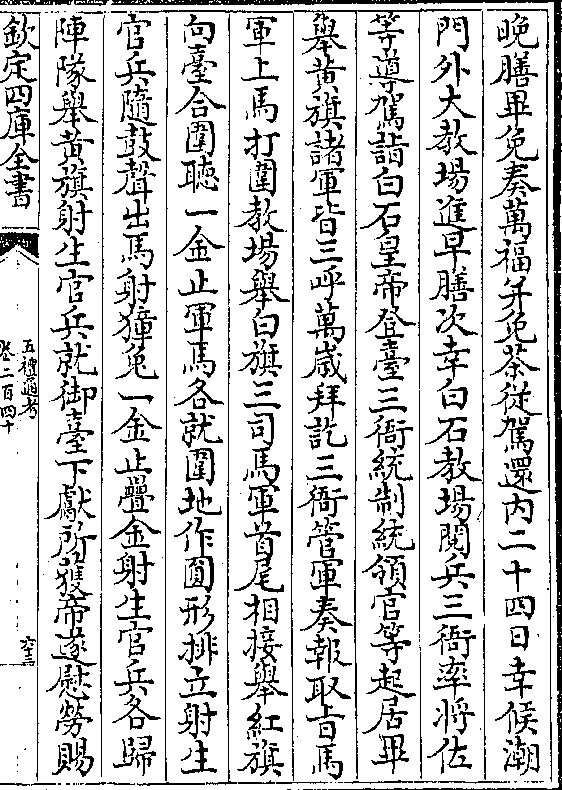 晚膳畢免奏萬福并免茶從駕還内二十四日幸候潮
門外大教場進早膳次幸白石教場閱兵三衙率將佐
等導駕詣白石皇帝登臺三衙統制統領官等起居畢
舉黄旗諸軍皆三呼萬歲拜訖三衙管軍奏報取㫖馬
軍上馬打圍教場舉白旗三司馬軍首尾相接舉紅旗
向臺合圍聽一金止軍馬各就圍地作圓形排立射生
官兵隨鼓聲出馬射獐兔一金止疊金射生官兵各歸
陣隊舉黄旗射生官兵就御臺下獻所獲帝遂慰勞賜
欽定四庫全書
五禮通考
卷二百四十
六十三